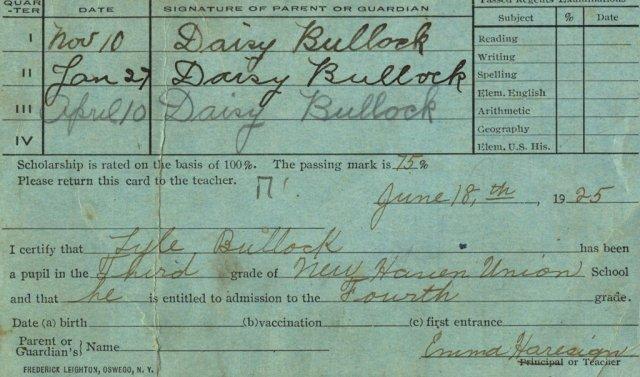 QUAR-TER DATE SIGNATURE OF PARENT OR GUARDIAN
I Nov 10 Daisy Bullock
II Jan 27 Daisy Bullock
III April 10 Daisy Bullock
IV
Passed Regents Examinations
Subject % Date
Reading
Writing
Spelling
Elem. English
Arithmetic
Geography
Elem. U.S. His.
Scholarship is rated on the basis of 100%. The passing mark is 75%
Please return this card to the teacher.
June 18,th, 1925
I certify that Lyle Bullock has been
a pupil in the Third grade of New Haven Union School
and that he is entitled to admission to the Fourth grade.
Date (a) birth (b) vaccination (c) first entrance
Parent or Guardian's } Name
Emma Haresign
Principal or Teacher
FREDERICK LEIGHTON, OSWEGO, N. Y.